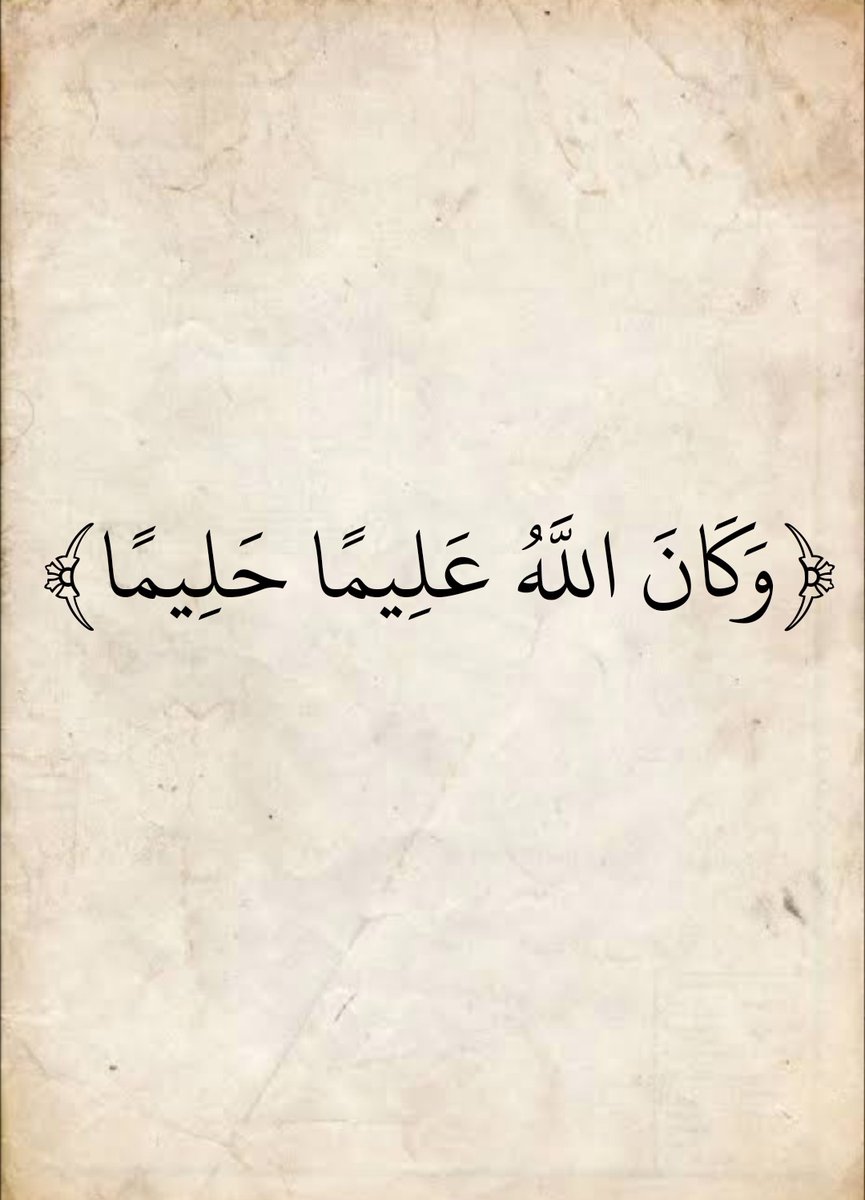 ﴿وَكَانَ اللَّهُ عَلِيمًا حَلِيمًا﴾